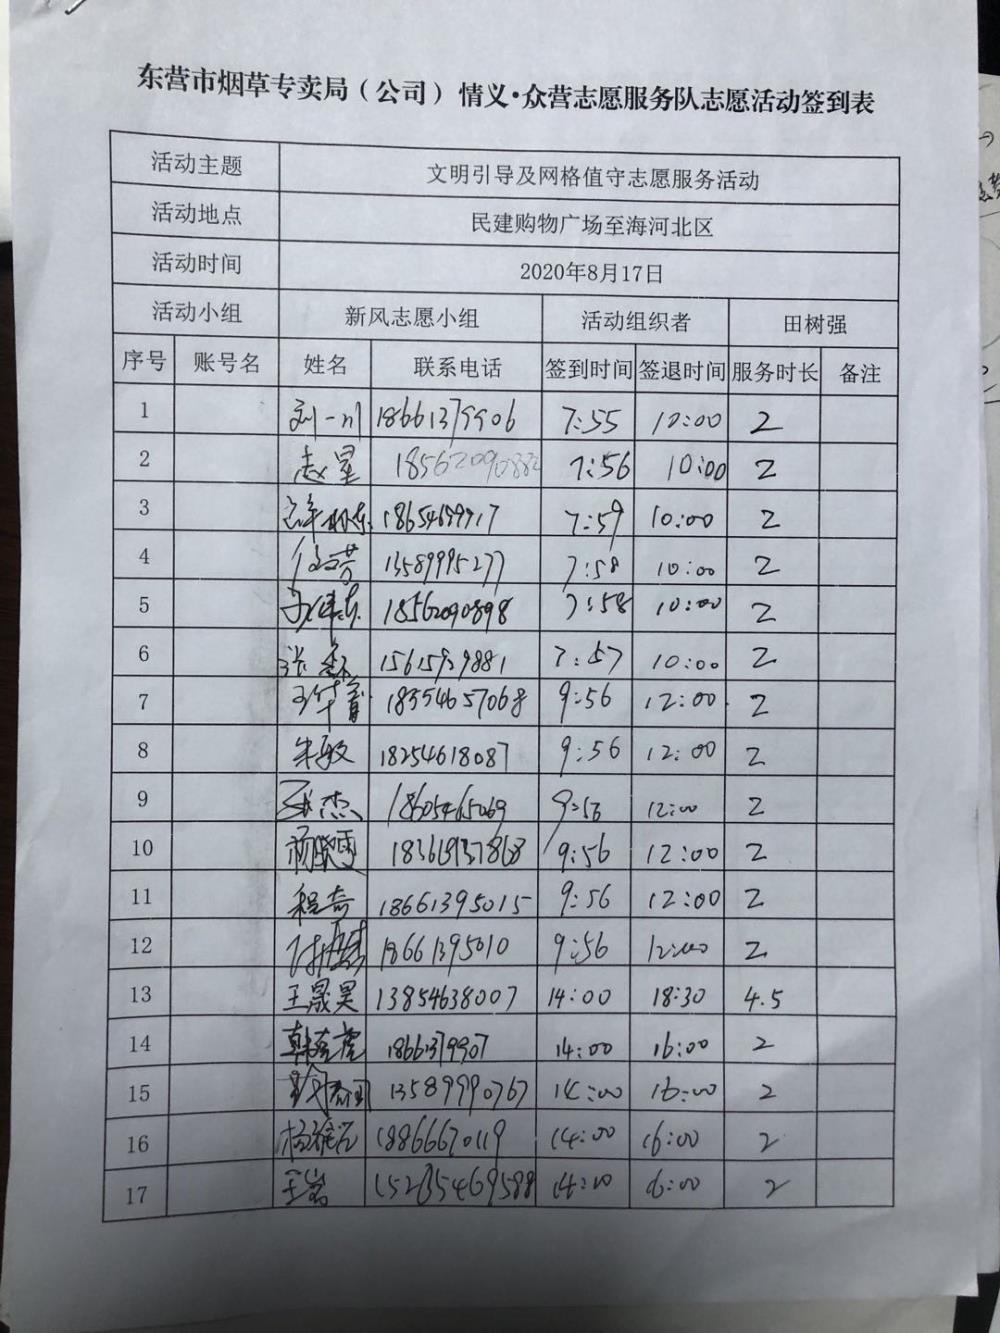 东营市烟草专卖局（公司）情义·众营志愿服务队志愿活动签到表
活动主题 文明引导及网格值守志愿服务活动
活动地点 民建购物广场至海河北区
活动时间 2020年8月17日
活动小组 新风志愿小组 活动组织者 田树强
序号 账号名 姓名 联系电话 签到时间 签退时间 服务时长 备注
1 刘一川 18661379906 7:55 10:00 2
2 赵星 18562090882 7:56 10:00 2
3 7:59 10:00 2
4 13589995277 7:58 10:00 2
5 18562090898 7:58 10:00 2
6 张磊 15615929881 7:57 10:00 2
7 18354657068 9:56 12:00 2
8 朱敏 18254618087 9:56 12:00 2
9 18605465069 9:56 12:00 2
10 9:56 12:00 2
11 程奇 18661395015 9:56 12:00 2
12 18661395010 9:56 12:00 2
13 王晟昊 13854638007 14:00 18:30 4.5
14 18661379907 14:00 16:00 2
15 13589990767 14:00 16:00 2
16 18866670119 14:00 16:00 2
17 王岩 14:00 16:00 2